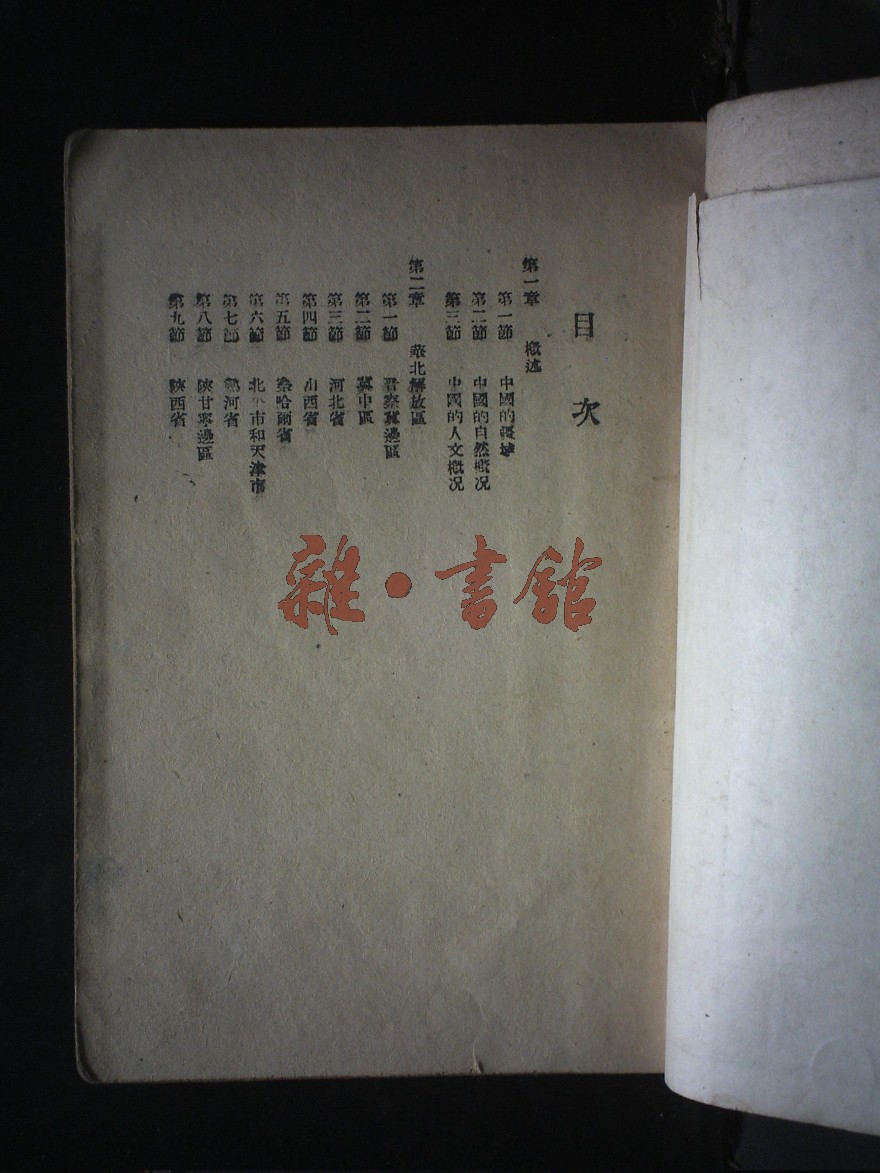 目次
第一章 概述
第一節 中國的疆域
第二節 中國的自然概況
第三節 中國的人文概況
第二章 華北解放區
第一節 晋察冀邊區
第二節 冀中區
第三節 河北省
第四節 山西省
第五節 察哈爾省
第六節 北平市和天津市
第七節 熱河省
第八節 陝甘寧邊區
第九節 陝西省
雜·書館